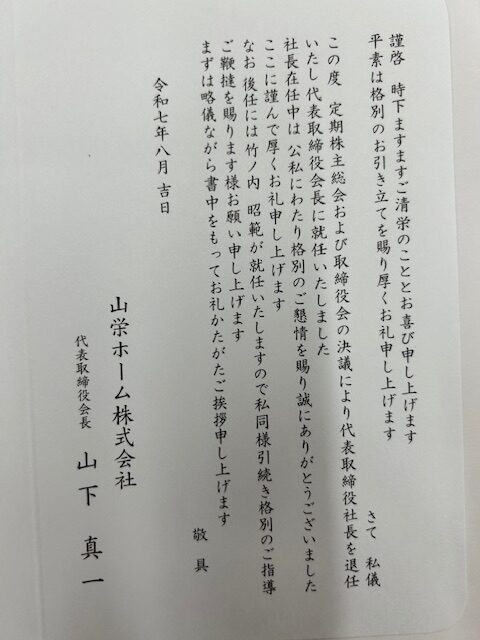 謹啓　時下ますますご清栄のこととお喜び申し上げます
平素は格別のお引き立てを賜り厚くお礼申し上げます
さて　私儀
この度　定期株主総会および取締役会の決議により代表取締役社長を退任
いたし　代表取締役会長に就任いたしました
社長在任中は　公私にわたり格別のご懇情を賜り誠にありがとうございました
ここに謹んで厚くお礼申し上げます
なお　後任には　竹ノ内　昭範が就任いたしますので私同様引続き格別のご指導
ご鞭撻を賜ります様お願い申し上げます
まずは略儀ながら書中をもってお礼かたがたご挨拶申し上げます
敬具
令和七年八月　吉日
山栄ホーム株式会社
代表取締役会長　山下　真一